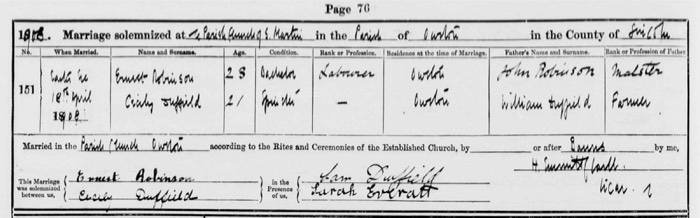 Page 76
1908. Marriage solemnized at the Parish Church of S. Martin in the Parish of Owston in the County of Lincoln
No. When Married. Name and Surname. Age. Condition. Rank or Profession. Residence at the time of Marriage. Father's Name and Surname. Rank or Profession of Father
151 18th April 1908 Ernest Robinson 28 Bachelor Labourer Owston John Robinson Malster
Duffield 21 Spinster — Owston William Duffield Farmer
Married in the Parish Church Owston according to the Rites and Ceremonies of the Established Church, by or after Banns by me,
This Marriage was solemnized between us, Ernest Robinson in the Presence of us, Sam Duffield H.
Cecily Duffield Sarah Everatt Vicar